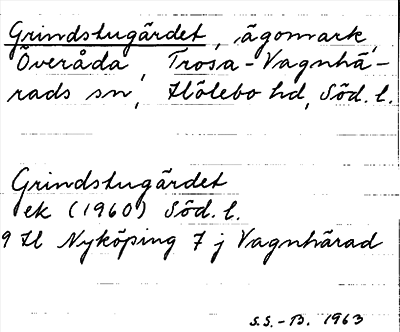 Grindstugärdet, ägomark,
Överåda, Trosa-Vagnhä-
rads sn, Hölebo hd, Söd. l.
Grindstugärdet
ek (1960) Söd. l.
9 H Nyköping 7 j Vagnhärad
S.S.-B. 1963